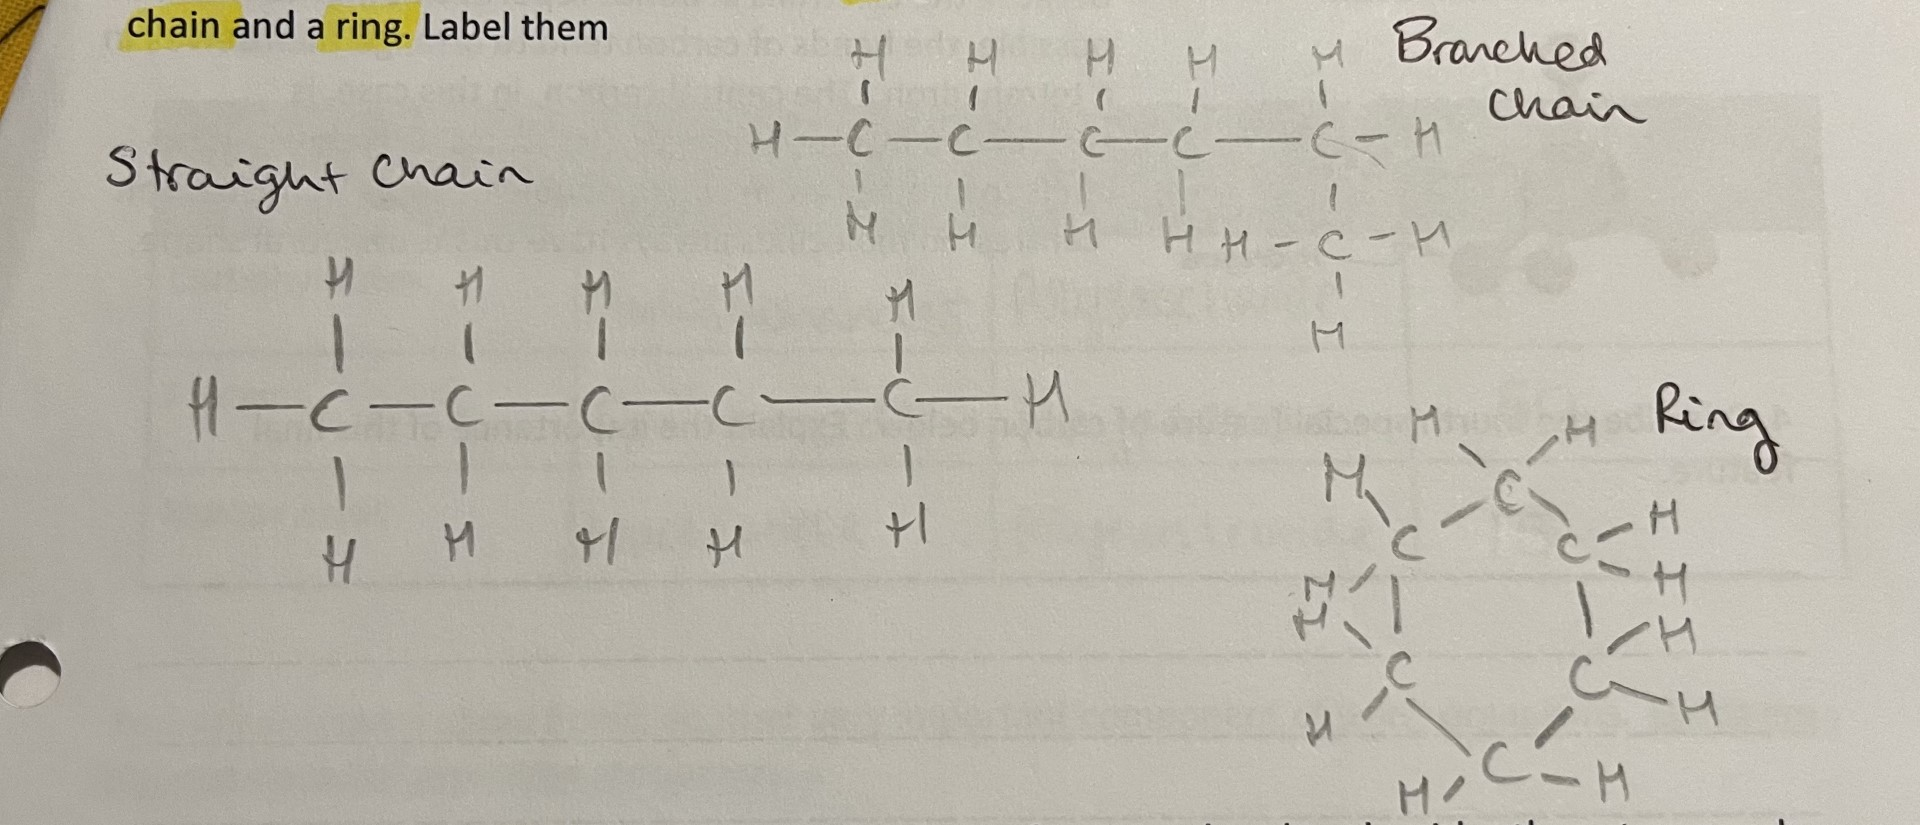 chain and a ring. Label them
Branched
chain
H H H H H
H—C—C—C—C—C—H
H H H H H—C—H
H
Straight chain
H H H H H
H—C—C—C—C—C—H
H H H H H
Ring
H H
H C
C C H
H H
H H
C C H
H C H
H